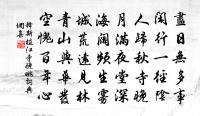 盡日無多事
閒行一徑陰
人歸秋寺晚
月滿夜堂深
海闊頻生霧
城荒遠見林
青山與華髮
空愧百年心